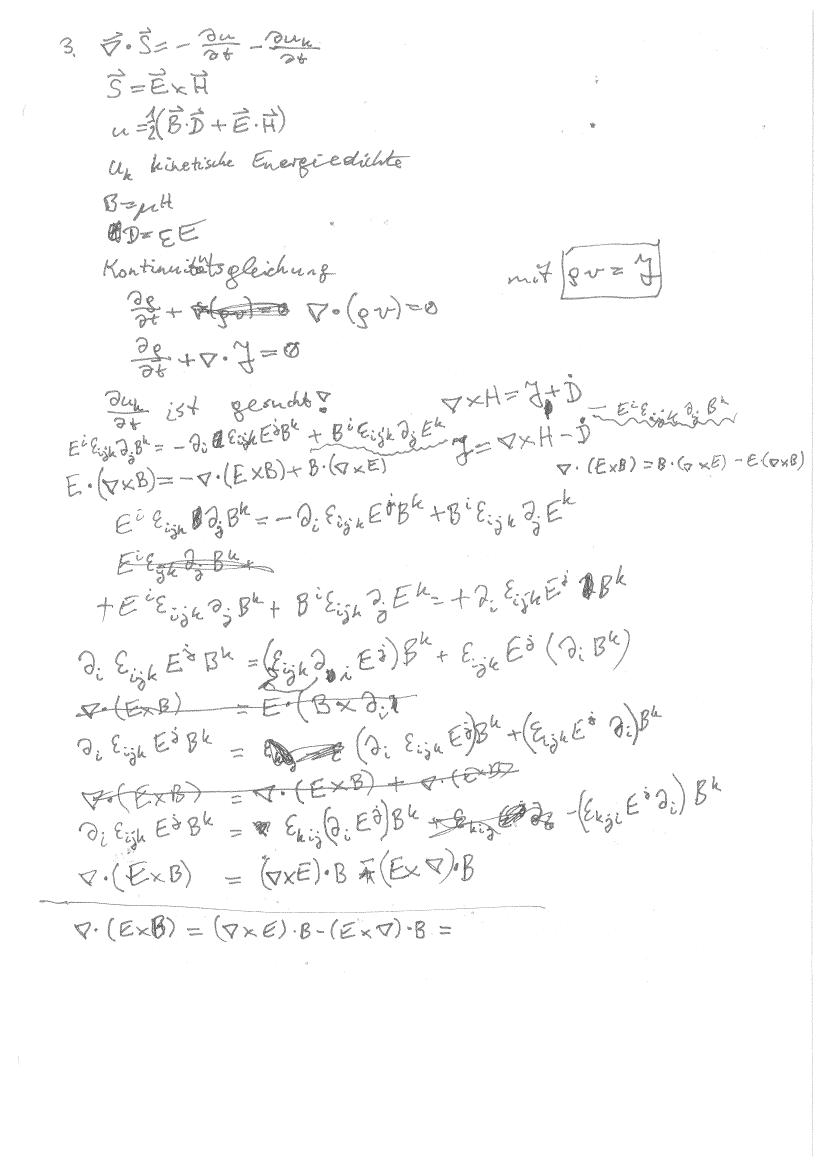 3. ∇⃗·S⃗ = − ∂u/∂t − ∂uₖ/∂t
S⃗ = E⃗ × H⃗
u = ½(B⃗·D⃗ + E⃗·H⃗)
uₖ kinetische Energiedichte
B = μH
D = εE
Kontinuitätsgleichung
mit ρv = J
∂ρ/∂t + ∇·(ρv) = 0
∂ρ/∂t + ∇·J = 0
∂uₖ/∂t ist gesucht!
∇×H = J + Ḋ
− Eⁱ εᵢⱼₖ ∂ⱼ Bᵏ
Eⁱ εᵢⱼₖ ∂ⱼ Bᵏ = − ∂ᵢ εᵢⱼₖ Eʲ Bᵏ + Bⁱ εᵢⱼₖ ∂ⱼ Eᵏ
J = ∇×H − Ḋ
E·(∇×B) = −∇·(E×B) + B·(∇×E)
∇·(E×B) = B·(∇×E) − E·(∇×B)
Eⁱ εᵢⱼₖ ∂ⱼ Bᵏ = − ∂ᵢ εᵢⱼₖ Eʲ Bᵏ + Bⁱ εᵢⱼₖ ∂ⱼ Eᵏ
Eⁱ εᵢⱼₖ ∂ⱼ Bᵏ +
+ Eⁱ εᵢⱼₖ ∂ⱼ Bᵏ + Bⁱ εᵢⱼₖ ∂ⱼ Eᵏ = + ∂ᵢ εᵢⱼₖ Eʲ Bᵏ
∂ᵢ εᵢⱼₖ Eʲ Bᵏ = (εᵢⱼₖ ∂ᵢ Eʲ) Bᵏ + εᵢⱼₖ Eʲ (∂ᵢ Bᵏ)
∇·(E×B) = E·(B×∂ᵢ
∂ᵢ εᵢⱼₖ Eʲ Bᵏ = (∂ᵢ εᵢⱼₖ Eʲ) Bᵏ + (εᵢⱼₖ Eʲ ∂ᵢ) Bᵏ
∇·(E×B) = ∇·(E×B) + ∇·(E×B)
∂ᵢ εᵢⱼₖ Eʲ Bᵏ = εₖᵢⱼ (∂ᵢ Eʲ) Bᵏ − (εₖⱼᵢ Eʲ ∂ᵢ) Bᵏ
∇·(E×B) = (∇×E)·B − (E×∇)·B
∇·(E×B) = (∇×E)·B − (E×∇)·B =